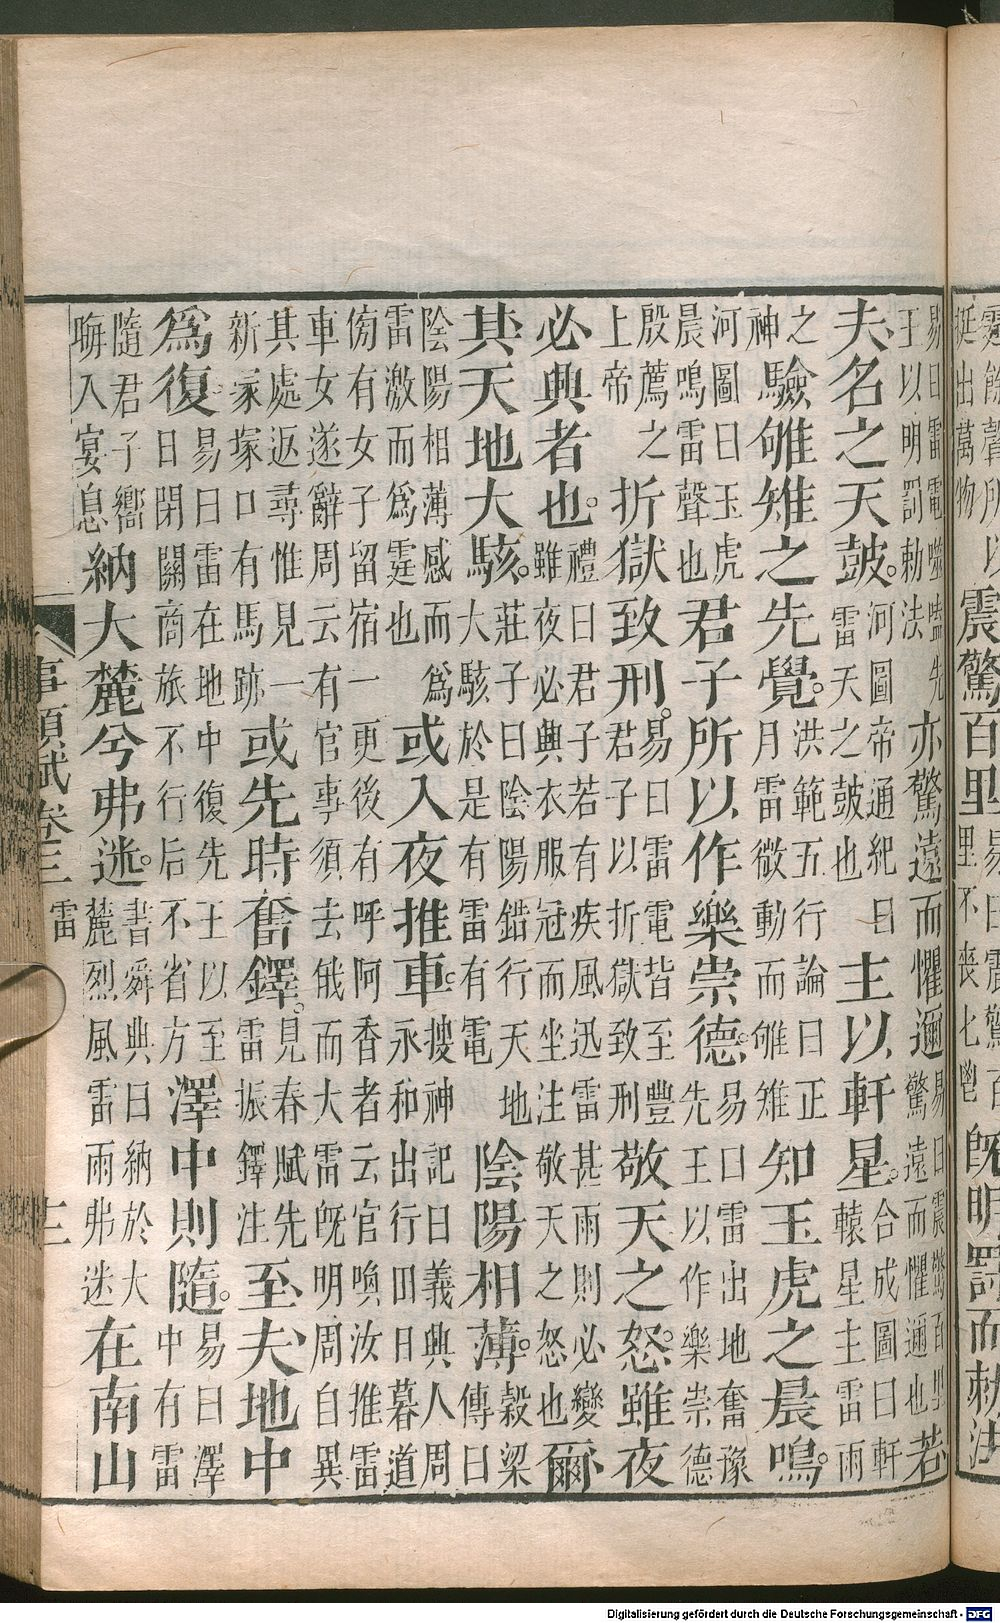 霆餘聲所以
挺出萬物
震驚百里
易曰震驚百
里不喪匕鬯
既明罰而勑法
易曰雷電噬嗑先
王以明罰勑法
亦驚遠而懼邇
易曰震驚百里
驚遠而懼邇也
若
夫名之天鼓。
河圖帝通紀曰
雷天之鼓也
主以軒星。
合成圖曰軒
轅星主雷雨
之
神
驗雊雉之先覺。
洪範五行論曰正
月雷微動而雊雉
知玉虎之晨鳴。
河圖曰玉虎
晨鳴雷聲也
君子所以作樂崇德。
易曰雷出地奮豫
先王以作樂崇德
殷薦之
上帝
折獄致刑。
易曰雷電皆至豐
君子以折獄致刑
敬天之怒。雖夜
必興者也。
禮曰君子若有疾風迅雷甚雨則必變
雖夜必興衣服冠而坐注敬天之怒也
爾
其天地大駭。
莊子曰陰陽錯行天地
大駭於是有雷有電
陰陽相薄。
穀梁
傳曰
陰陽相薄感而為
雷激而為霆也
或入夜推車。
搜神記曰義興人周
永和出行田日暮道
傍有女子留宿一更後有呼阿香者云官喚汝推雷
車女遂辭周云有官事須去俄而大雷既明周自異
其處返尋惟見一
新冢塚口有馬跡
或先時奮鐸。
見春賦先
雷振鐸注
至夫地中
為復。
易曰雷在地中復先王以至
日閉關商旅不行后不省方
澤中則隨。
易曰澤
中有雷
隨君子嚮
晦入宴息
納大麓兮弗迷。
書舜典曰納於大
麓烈風雷雨弗迷
在南山
事類賦卷三 雷 三
Digitalisierung gefördert durch die Deutsche Forschungsgemeinschaft - DFG